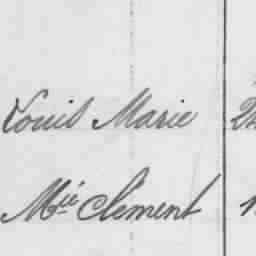 Louis Marie
Mie Clément